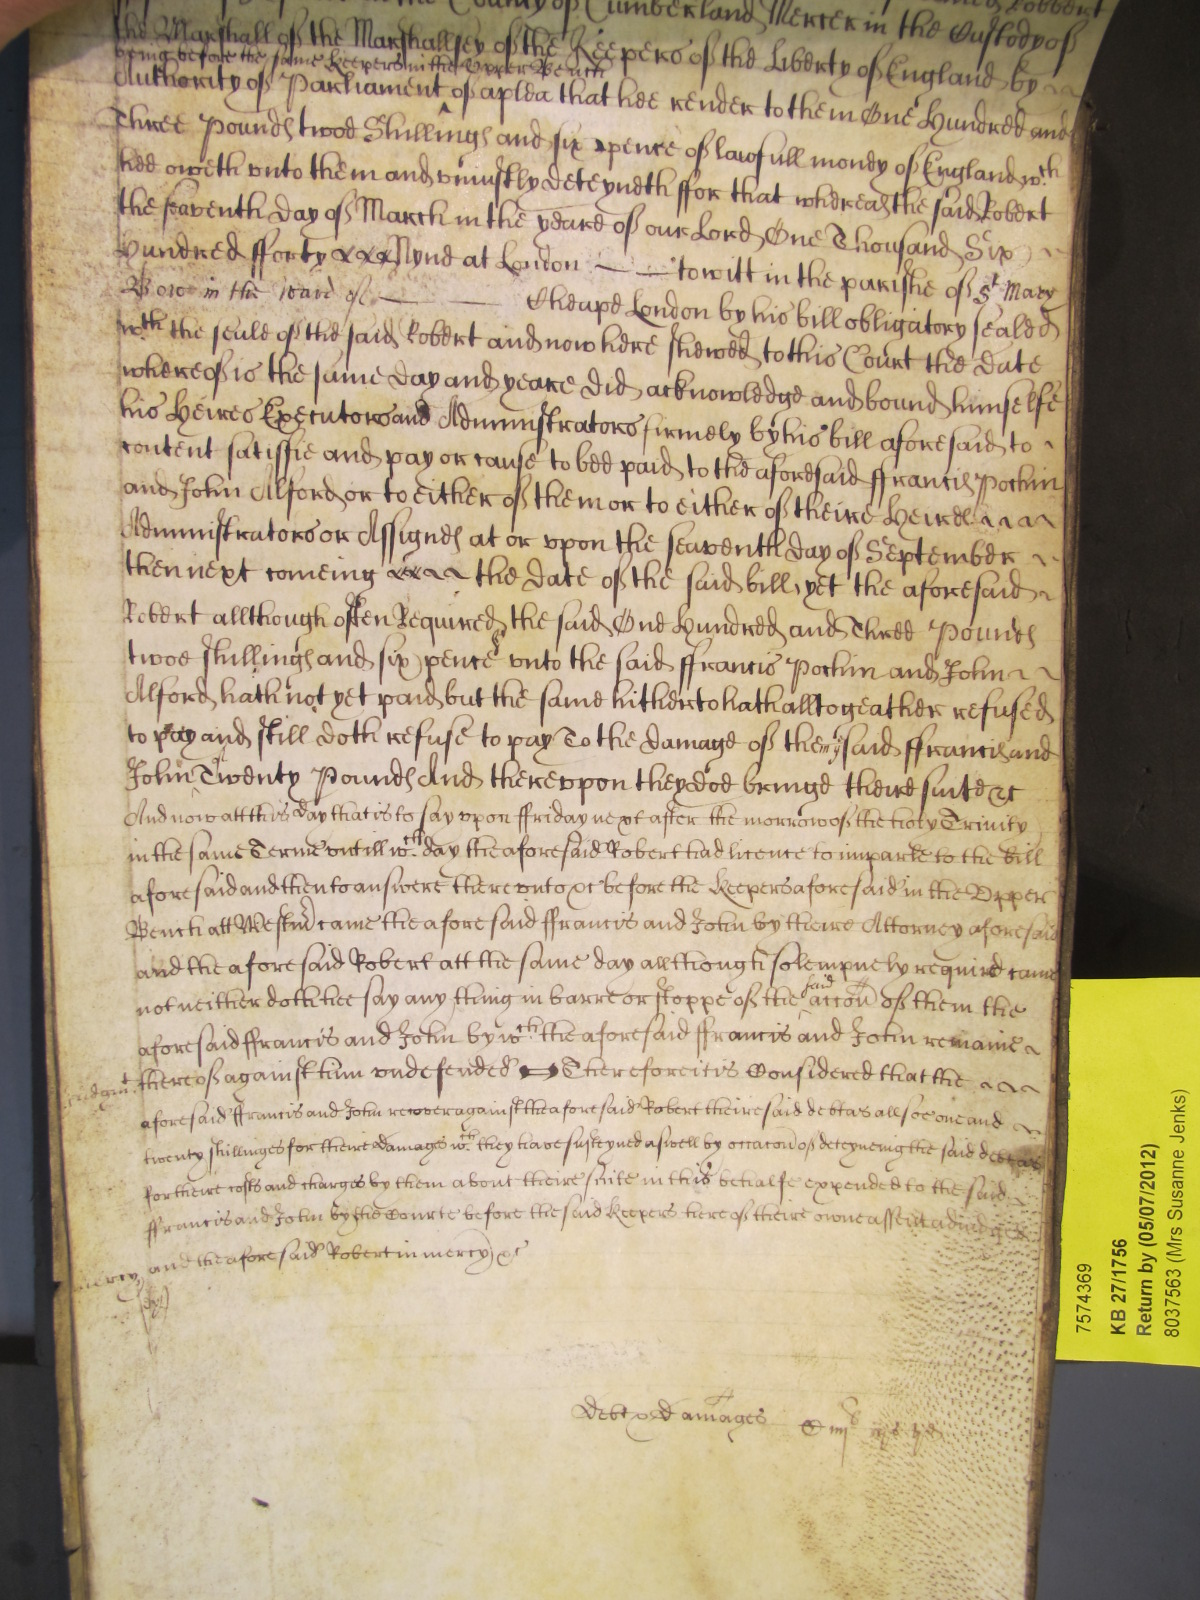 in the County of Cumberland Mercer in the Custody of
the Marshall of the Marshallsey of the Keepers of the Liberty of England by
being before the same Keepers in the Upper Bench
Authority of Parliament of a plea that hee render to them One Hundred and
Three Pounds twoe Shillings and six pence of lawfull money of England wth
hee oweth vnto them and vniustly deteyneth ffor that whereas the said Robert
the seaventh day of March in the yeare of our Lord One Thousand Six
Hundred fforty Nyne at London to witt in the parishe of St Mary
Bow in the ward of Cheape London by his bill obligatory sealed
wth the seale of the said Robert and now here shewed to this Court the date
whereof is the same day and yeare did acknowledge and bound himselfe
his Heires Executors and Administrators firmely by his bill aforesaid to
content satisfie and pay or cause to bee paid to the aforesaid ffrancis Pochin
and John Alford or to either of them or to either of theire Heires
Administrators or Assignes at or vpon the seaventh day of September
then next comeing the date of the said bill, yet the aforesaid
Robert allthough often Required the said One Hundred and Three Pounds
twoe shillings and six pence vnto the said ffrancis Pochin and John
Alford hath not yet paid but the same hitherto hath alltogeather refused
to pay and still doth refuse to pay To the damage of them said ffrancis and
John Twenty Pounds And therevpon they doe bringe theire suite &c
And now att this day that is to say vpon ffriday next after the morrow of the holy Trinity
in the same Terme vntill wch day the aforesaid Robert had licence to imparle to the bill
aforesaid and then to answere therevnto &c before the Keepers aforesaid in the Vpper
Bench att Westmr came the aforesaid ffrancis and John by theire Attorney aforesaid
and the aforesaid Robert att the same day allthough solempnely required came
not neither doth hee say any thing in barre or stoppe of the said accon of them the
aforesaid ffrancis and John by wch the aforesaid ffrancis and John remaine
thereof against him vndefended Therefore it is Considered that the
aforesaid ffrancis and John recover against the aforesaid Robert theire said debt as allsoe one and
twenty shillinges for theire damages wch they have susteyned aswell by occacon of deteyneing the said debt as
for theire costs and charges by them about theire suite in this behalfe expended to the said
ffrancis and John by the Courte before the said Keepers here of theire owne assent adiudged
and the aforesaid Robert in mercy &c
mercy
debt & damages
7574369
KB 27/1756
Return by (05/07/2012)
8037563 (Mrs Susanne Jenks)